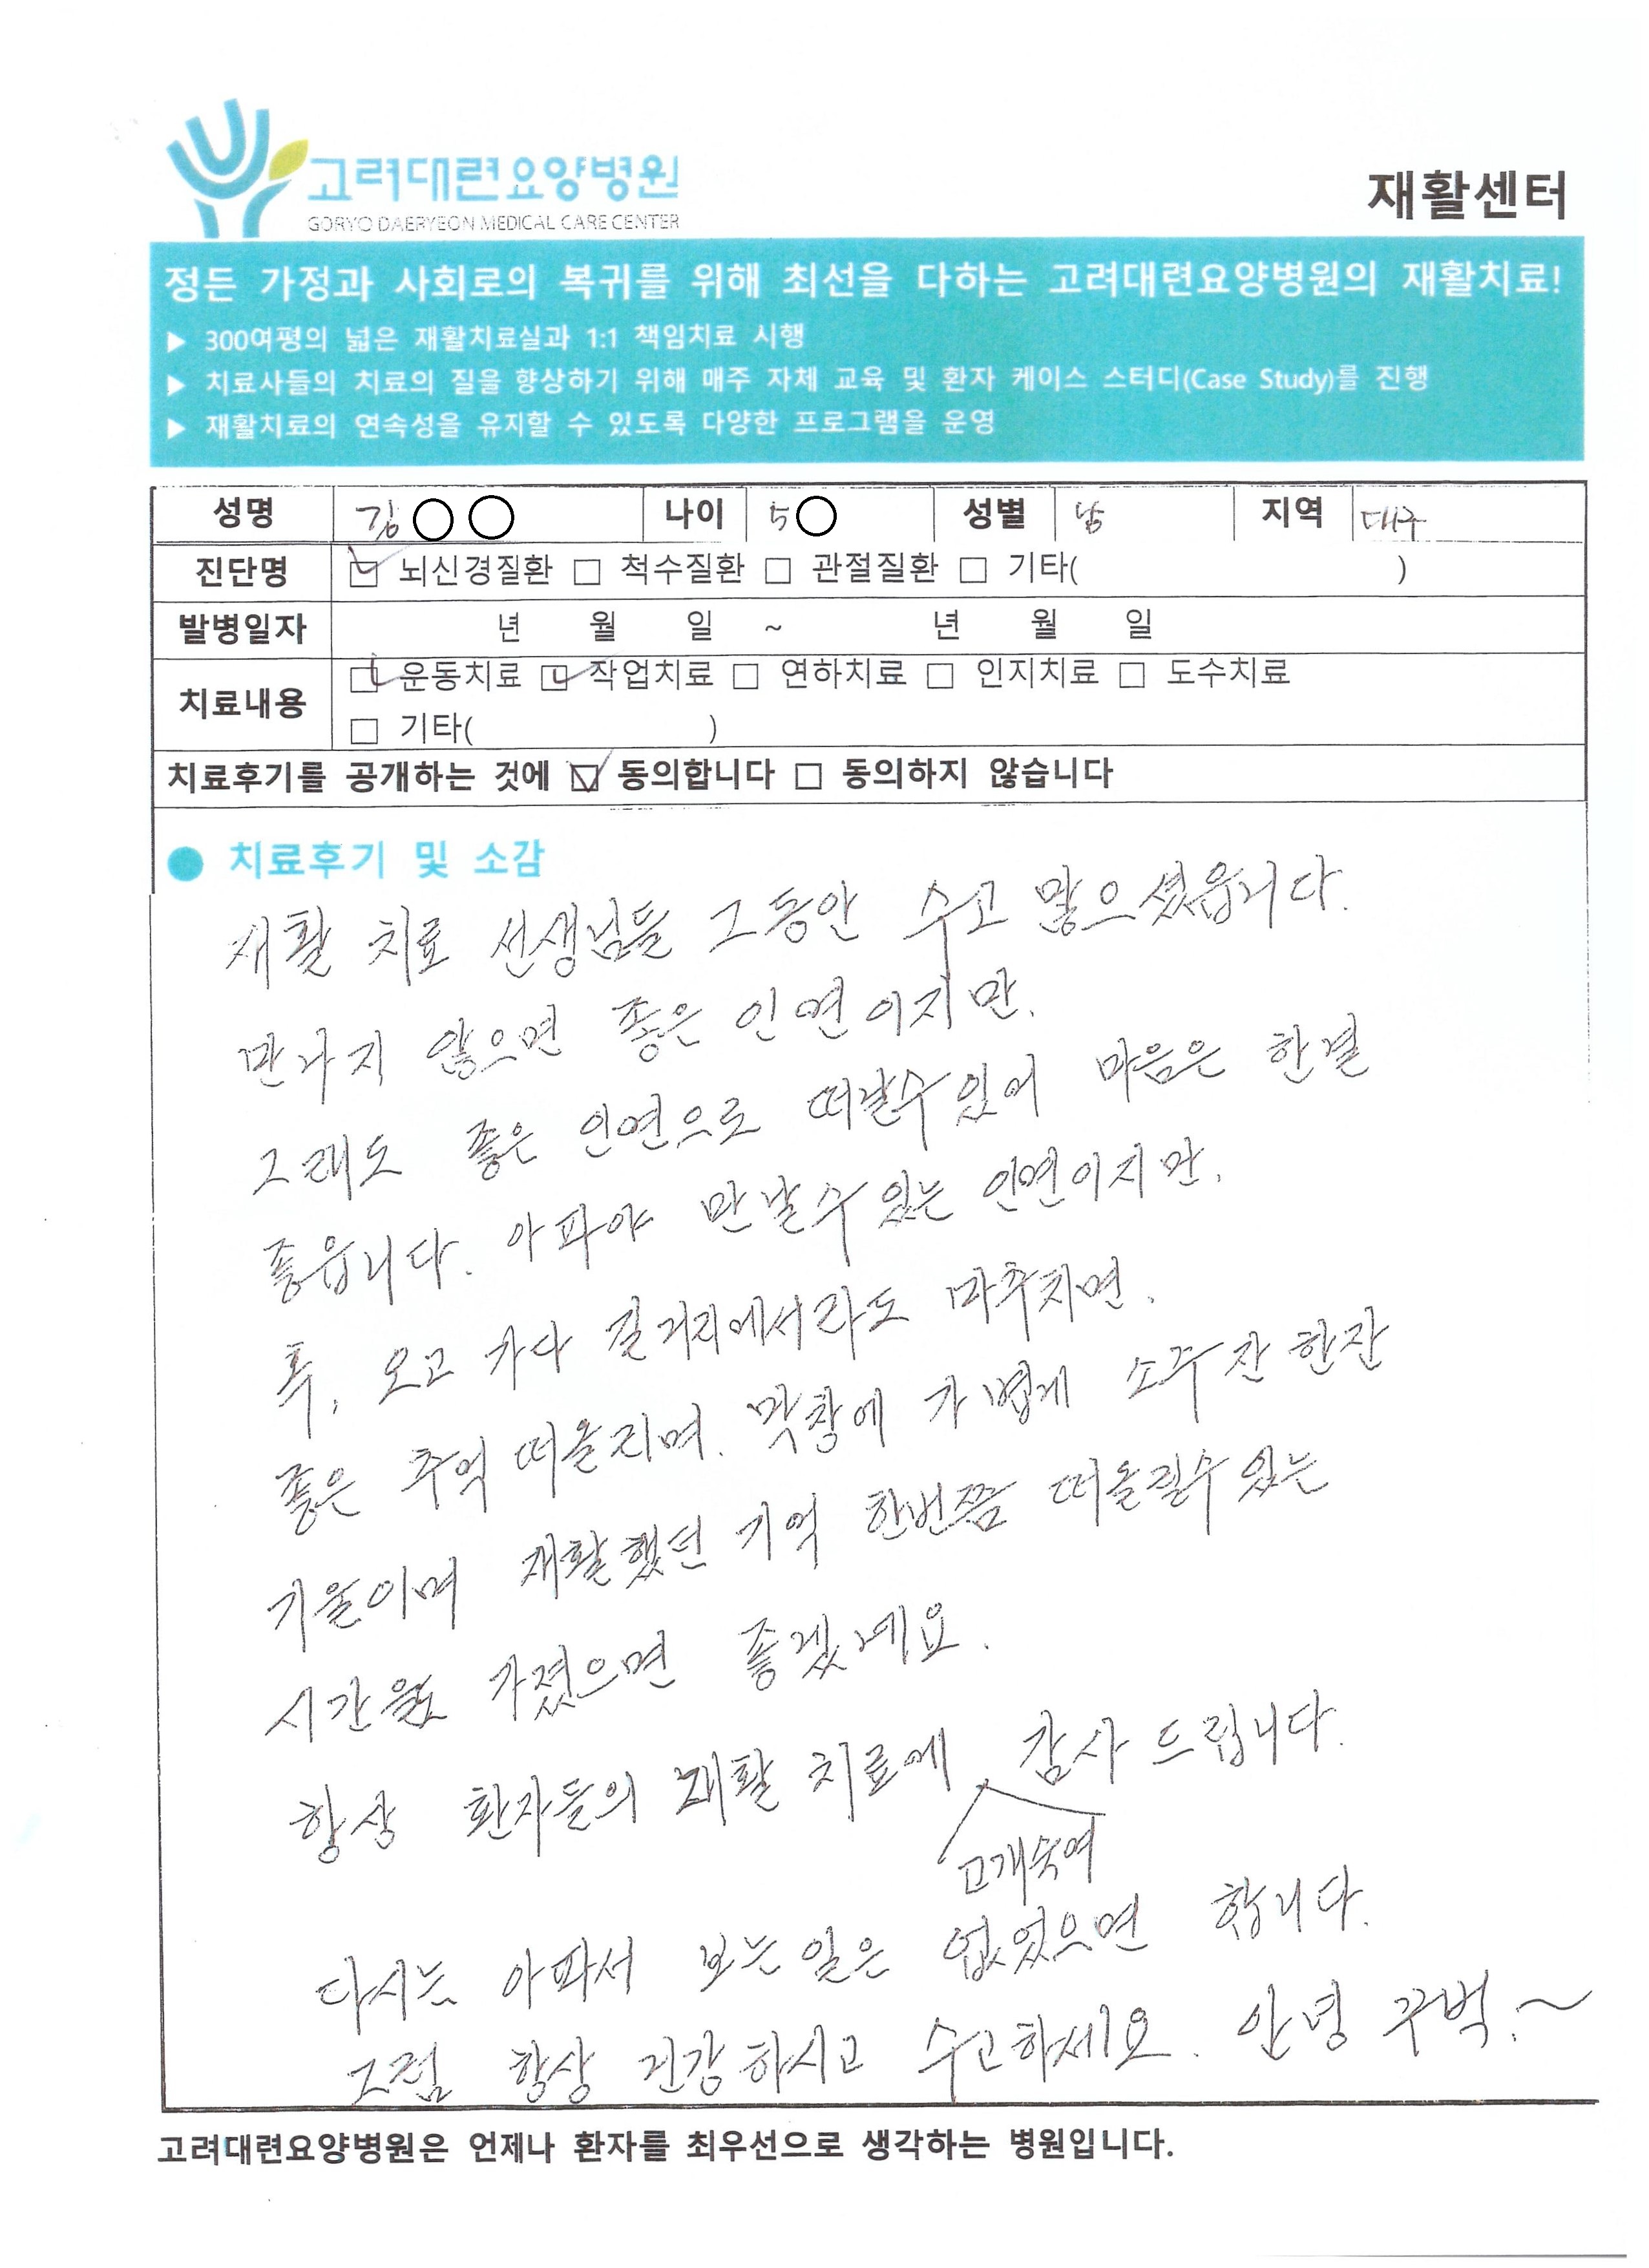 고려대련요양병원
GORYO DAERYEON MEDICAL CARE CENTER
재활센터
정든 가정과 사회로의 복귀를 위해 최선을 다하는 고려대련요양병원의 재활치료!
▶ 300여평의 넓은 재활치료실과 1:1 책임치료 시행
▶ 치료사들의 치료의 질을 향상하기 위해 매주 자체 교육 및 환자 케이스 스터디(Case Study)를 진행
▶ 재활치료의 연속성을 유지할 수 있도록 다양한 프로그램을 운영
성명 김○○ 나이 5○ 성별 남 지역 대구
진단명 ☑ 뇌신경질환 □ 척수질환 □ 관절질환 □ 기타( )
발병일자 년 월 일 ~ 년 월 일
치료내용 ☑ 운동치료 ☑ 작업치료 □ 연하치료 □ 인지치료 □ 도수치료
□ 기타( )
치료후기를 공개하는 것에 ☑ 동의합니다 □ 동의하지 않습니다
● 치료후기 및 소감
재활 치료 선생님들 그동안 수고 많으셨읍니다.
만나지 않으면 좋은 인연이지만.
그래도 좋은 인연으로 떠날수있어 마음은 한결
좋읍니다. 아파야 만날수있는 인연이지만.
혹, 오고 가다 길거리에서라도 마추치면.
좋은 추억 떠올리며. 맞창에 가볍게 소주잔 한잔
기울이며 재활했던 기억 한번쯤 떠올릴수있는
시간을 가졌으면 좋겠네요.
항상 환자들의 재활 치료에 감사 드립니다.
고개숙여
다시는 아파서 보는일은 없었으면 합니다.
그럼 항상 건강하시고 수고하세요. 안녕 꾸벅.~
고려대련요양병원은 언제나 환자를 최우선으로 생각하는 병원입니다.